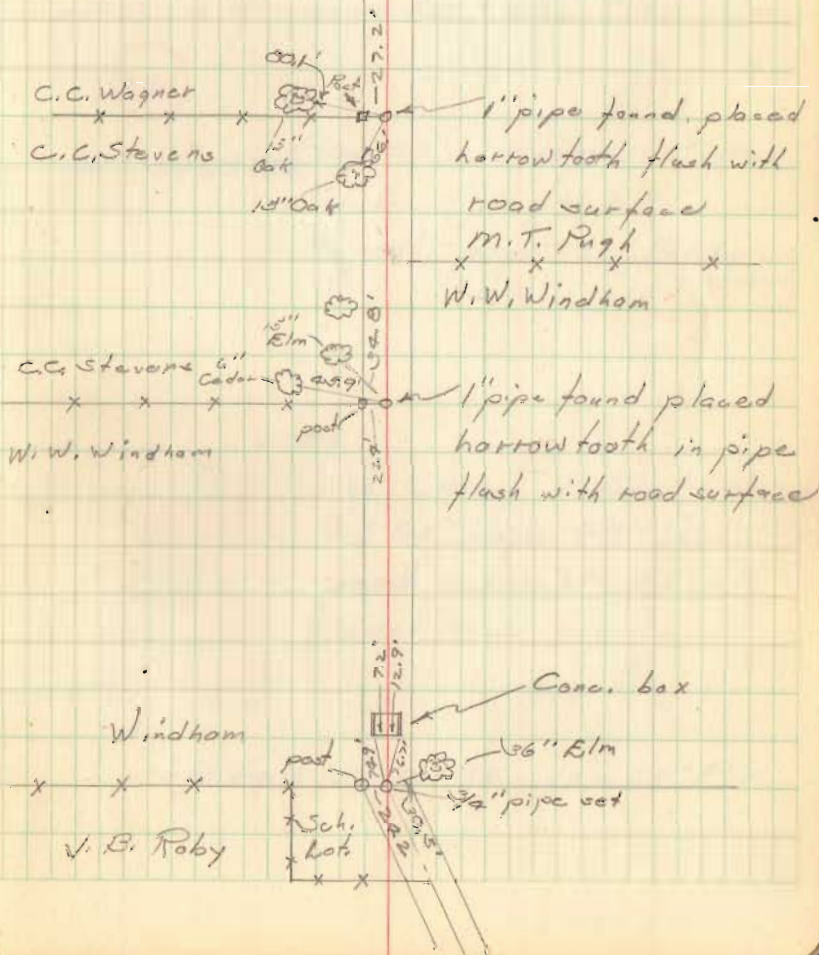 27.2'
C.C. Wagner
Post
C.C. Stevens
Oak
15" Oak
1" pipe found. placed
harrow tooth flush with
road surface
M.T. Pugh
W.W. Windham
34.8'
Elm
C.C. Stevens
Cedar
45.9'
post
W.W. Windham
1" pipe found placed
harrow tooth in pipe
flush with road surface
7.2'
12.9'
Conc. box
Windham
post
36" Elm
3/4" pipe set
30.5'
24.2
Sch.
Lot.
J.B. Roby